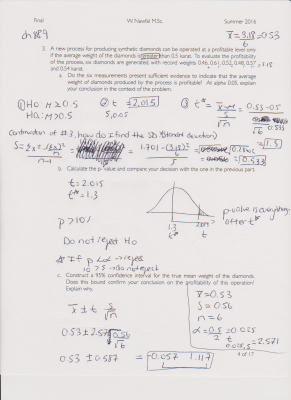 Final W. Nawfal M.Sc. Summer 2016
ch 8&9
x̄ = 3.18/6 = 0.53
3. A new process for producing synthetic diamonds can be operated at a profitable level only
if the average weight of the diamonds is greater than 0.5 karat. To evaluate the profitability
of the process, six diamonds are generated, with record weights 0.46, 0.61, 0.52, 0.48, 0.57
and 0.54 karat. = 3.18
a. Do the six measurements present sufficient evidence to indicate that the average
weight of diamonds produced by the process is profitable? At alpha 0.05, explain
your conclusion in the context of the problem.
① Ho: M ≥ 0.5 ② t = 2.015 ③ t* = x̄ - μ / s/√n = 0.53 - 0.5 / 0.533/√6
Ha: M > 0.5 5, 0.05 = 1.3
Continuation of #3, how do I find the SD (Standard deviation)
n-1 = 1.701 - (3.18)²/6 / 5 = 0.533
b. Calculate the p-value and compare your decision with the one in the previous part.
t = 2.015
t* = 1.3
p-value is everything
after t*
p > 10%
1.3 2.015
t* t
Do not reject Ho
* If p < α → reject
10 > 5 → do not reject
c. Construct a 95% confidence interval for the true mean weight of the diamonds.
Does this bound confirm your conclusion on the profitability of this operation?
Explain why.
x̄ ± t s/√n
x̄ = 0.53
s = 0.56
n = 6
0.53 ± 2.571 0.56/√6
α = 0.5/2 = 0.025
t 0.025, 5 = 2.571
0.53 ± 0.587 = -0.057 1.117
of 17